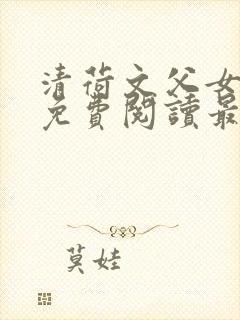 清荷文父女
免費閱讀最
莫娃